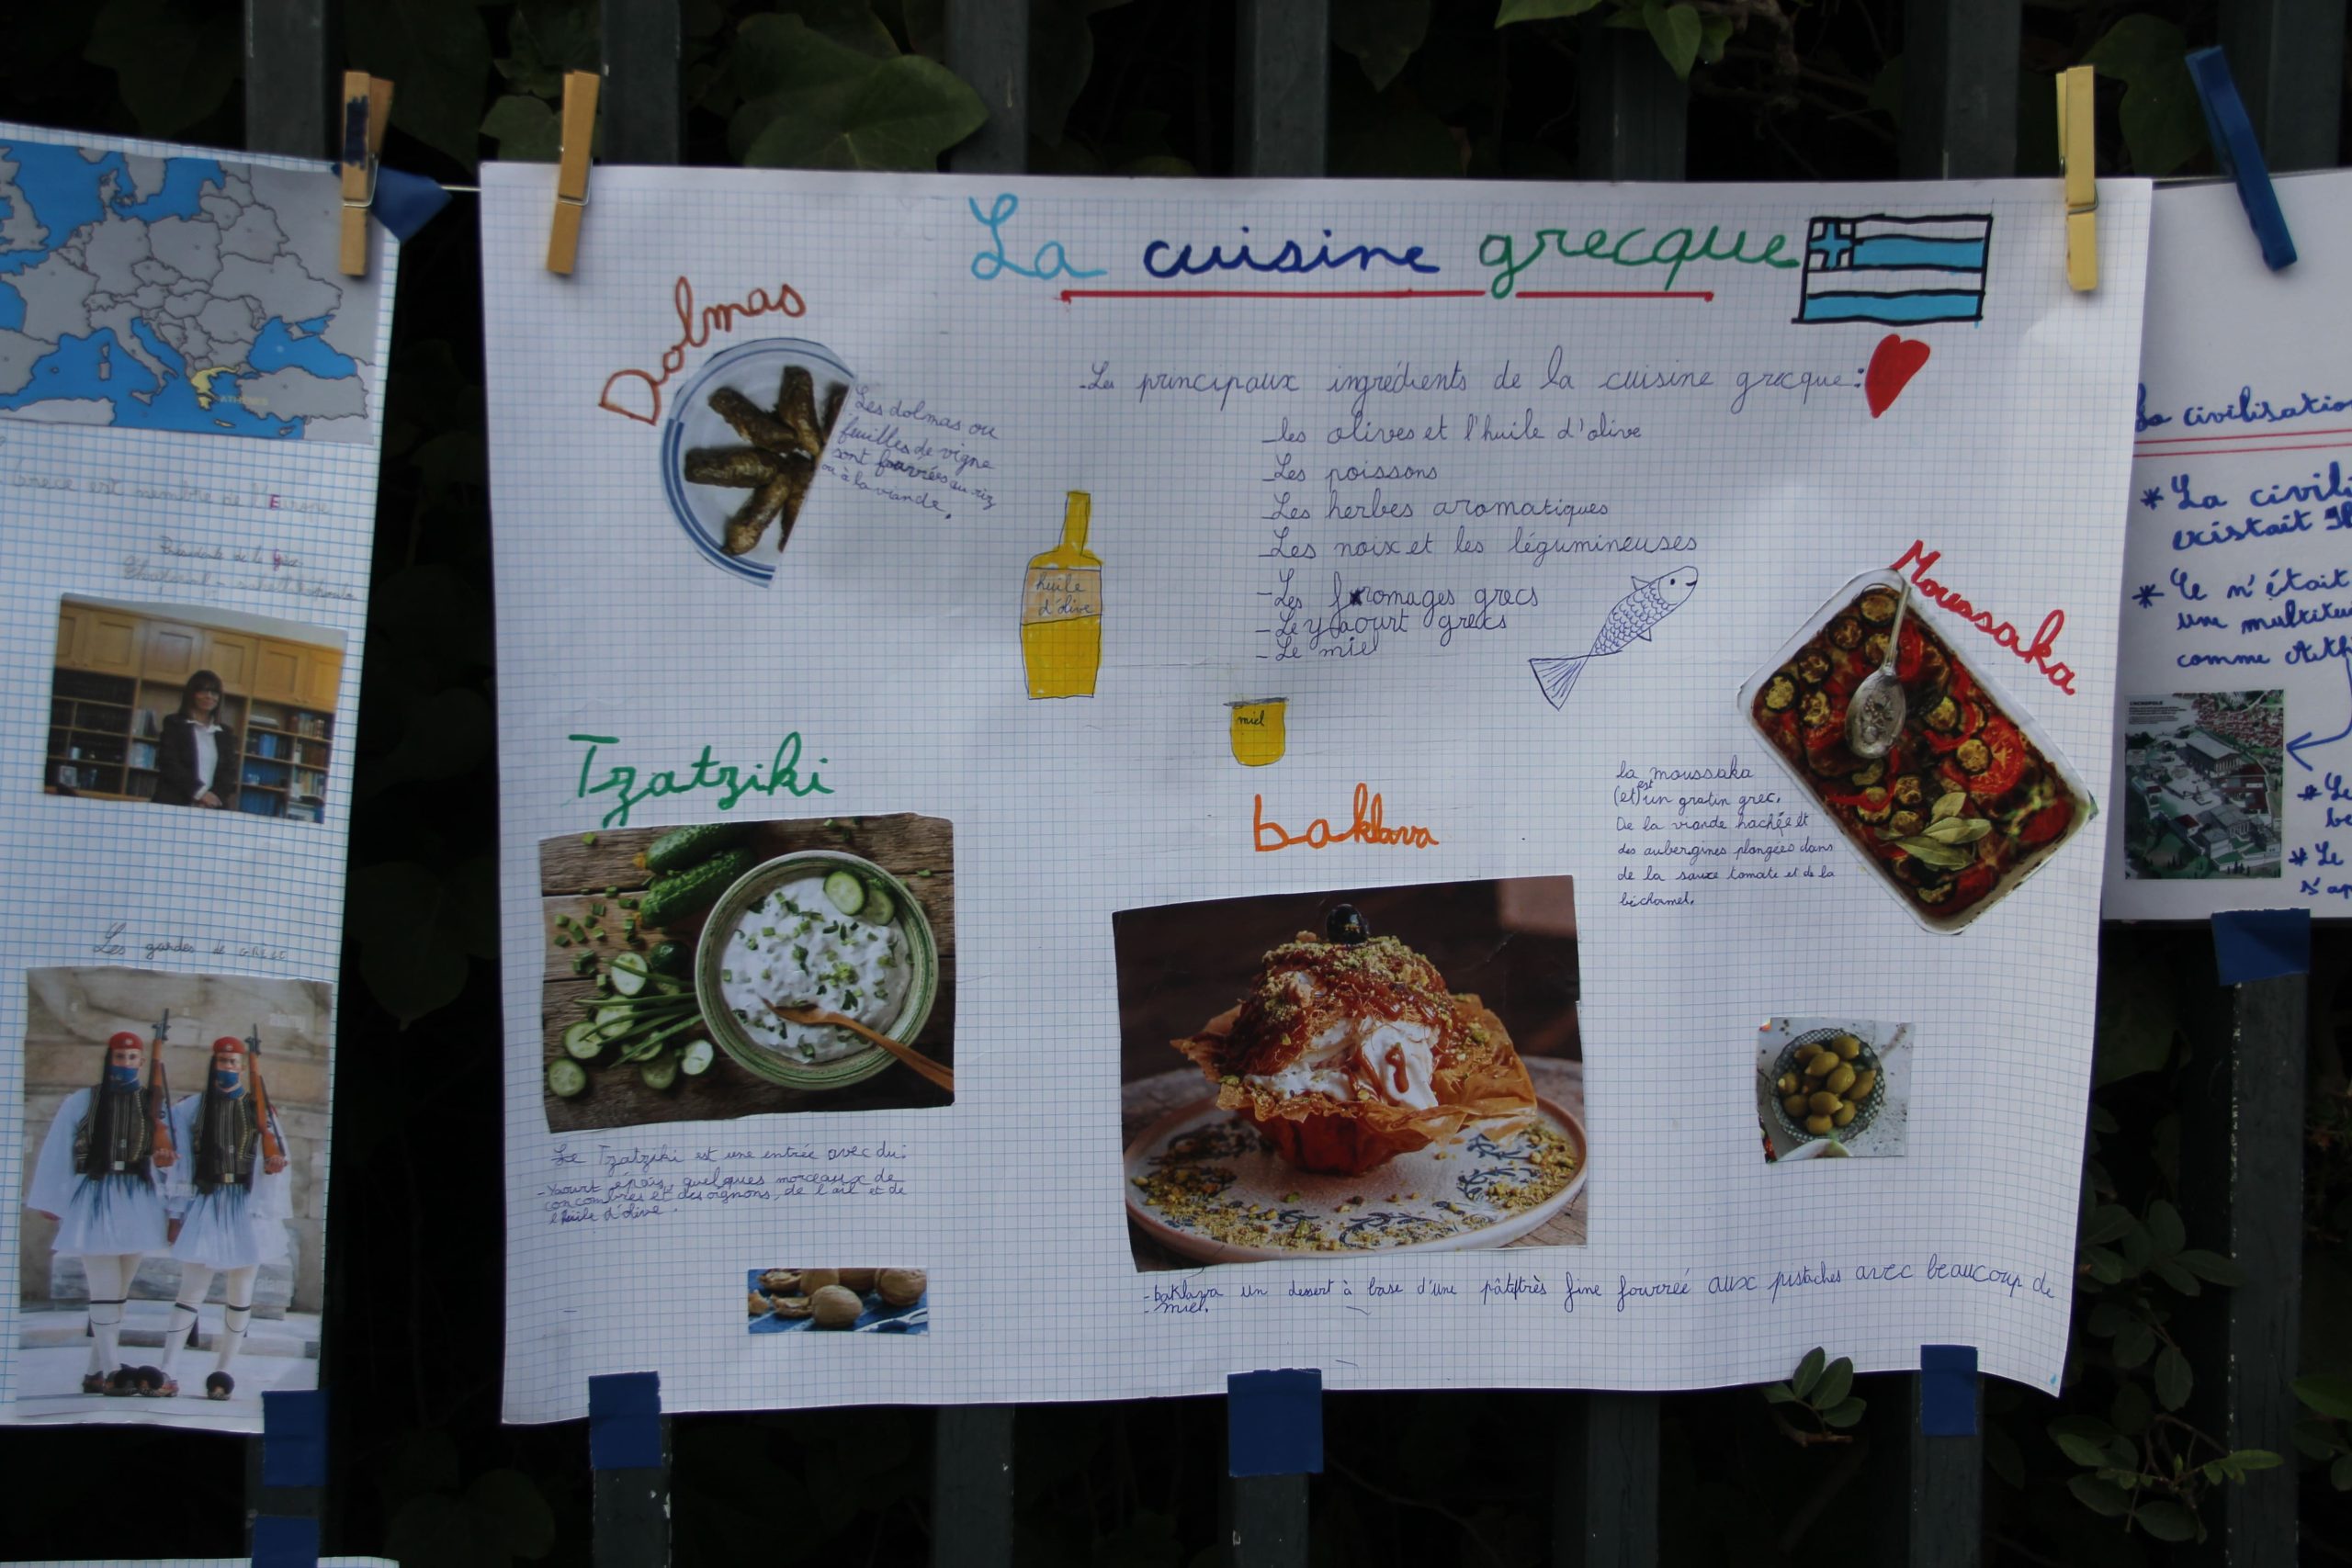 ATHÈNES
Grèce est membre de l'Europe
Présidente de la Grèce
Les gardes de GRECE
La cuisine grecque
Dolmas
Les dolmas ou
feuilles de vigne
sont fourrées au riz
ou à la viande.
-Les principaux ingrédients de la cuisine grecque:
-les olives et l'huile d'olive
-Les poissons
-Les herbes aromatiques
-Les noix et les légumineuses
-Les fromages grecs
-Le yaourt grecs
-Le miel
huile
d'olive
miel
Moussaka
la moussaka
est
(et) un gratin grec.
De la viande hachée et
des aubergines plongées dans
de la sauce tomate et de la
béchamel.
Tzatziki
Le Tzatziki est une entrée avec du:
-Yaourt épais, quelques morceaux de
concombres et des oignons, de l'ail et de
l'huile d'olive.
baklava
-baklava un dessert à base d'une pâte très fine fourreé aux pistaches avec beaucoup de
-miel.
La civilisation
* La civili
existait
* Ce n'était
une multitu
comme Ath
L'ACROPOLE
* Le
be
* Le
s'ap